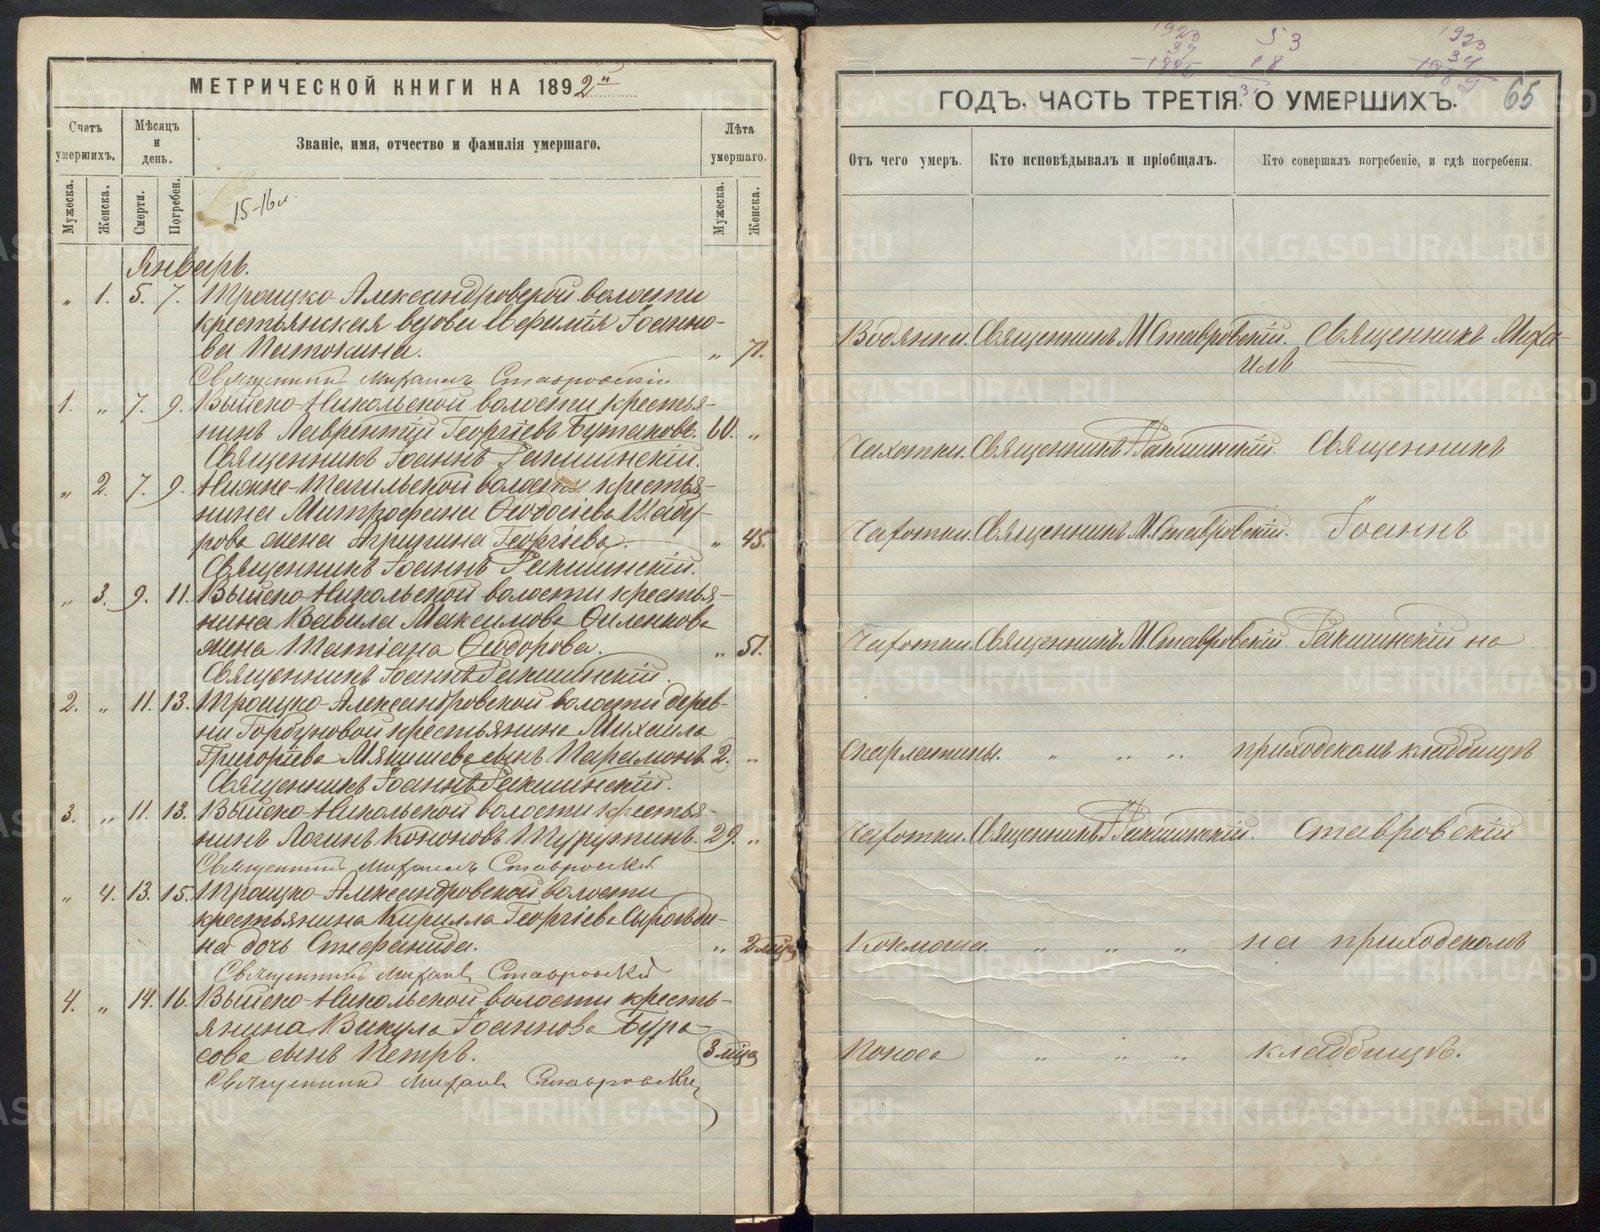 МЕТРИЧЕСКОЙ КНИГИ НА 1892й
Счетъ умершихъ.
Мѣсяцъ и день.
Званіе, имя, отчество и фамилія умершаго.
Лѣта умершаго.
Мужеска.
Женска.
Смерти.
Погребен.
Мужеска.
Женска.
15-16
Январь.
„ 1. 5. 7. Троицко-Александровской волости
крестьянская вдова Евфимія Іоанно-
ва Патокина. „ 71.
Священникъ Михаилъ Ставровскій
1. „ 7. 9. Выйско-Никольской волости крестья-
нинъ Лаврентій Георгіевъ Бутаковъ. 60. „
Священникъ Іоаннъ Ракшинскій.
„ 2. 7. 9. Нижне-Тагильской волости крестья-
нина Митрофана Ѳеодосіева Шабу-
рова жена Агрипина Георгіева. „ 45.
Священникъ Іоаннъ Ракшинскій.
„ 3. 9. 11. Выйско-Никольской волости крестья-
нина Вавила Максимова Оленкова
жена Татіана Ѳеодорова. „ 51.
Священникъ Іоаннъ Ракшинскій.
2. „ 11. 13. Троицко-Александровской волости дерев-
ни Горбуновой крестьянина Михаила
Григоріева Мякишева сынъ Парамонъ. 2. „
Священникъ Іоаннъ Ракшинскій.
3. „ 11. 13. Выйско-Никольской волости крестья-
нинъ Логинъ Кононовъ 29. „
Священникъ Михаилъ Ставровскій
„ 4. 13. 15. Троицко-Александровской волости
крестьянина Кирилла Георгіева Сыроѣди-
на дочь Стефанида. „ 2 мѣся
Священникъ Михаилъ Ставровскій
4. „ 14. 16. Выйско-Никольской волости кресть-
янина Викула Іоаннова Бура-
сова сынъ Петръ. 3 мѣся
Священникъ Михаилъ Ставровскій
1923
37
1886
53
18
1923
34
65
ГОДЪ, ЧАСТЬ ТРЕТІЯ. О УМЕРШИХЪ.
Отъ чего умеръ.
Кто исповѣдывалъ и пріобщалъ.
Кто совершалъ погребеніе, и гдѣ погребены.
Водянки. Священникъ М. Ставровскій. Священникъ Миха-
илъ
Чахотки. Священникъ І. Ракшинскій. Священникъ
Чахотки. Священникъ М. Ставровскій. Іоаннъ
Чахотки. Священникъ М. Ставровскій Ракшинскій на
Скарлатины. „ „ „ приходскомъ кладбищѣ
Чахотки. Священникъ І. Ракшинскій. Ставровскій
Коклюша. „ „ „ на приходскомъ
Поноса „ „ „ кладбищѣ.
METRIKI.GASO-URAL.RU